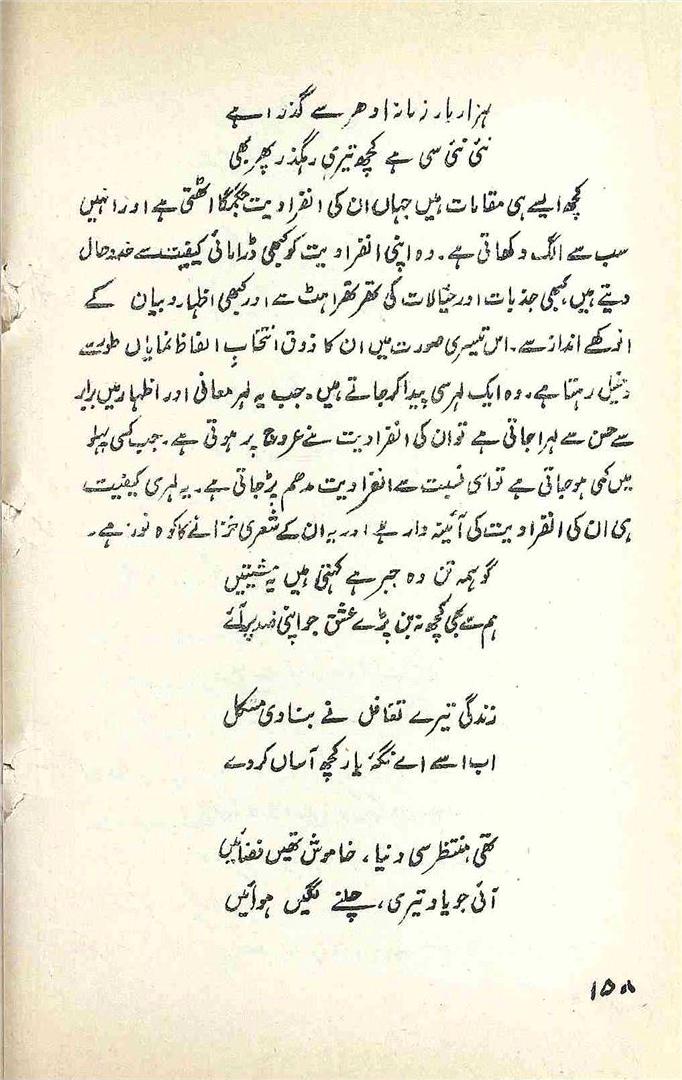 ہزار بار زمانہ ادھر سے گذرا ہے
نئی نئی سی ہے کچھ تیری رہگذر پھر بھی
کچھ ایسے ہی مقامات ہیں جہاں ان کی انفرادیت جگمگا اٹھتی ہے اور انہیں
سب سے الگ دکھاتی ہے۔ وہ اپنی انفرادیت کو کبھی ڈرامائی کیفیت سے خدوخال
دیتے ہیں، کبھی جذبات اور خیالات کی تھرتھراہٹ سے اور کبھی اظہار و بیان کے
انوکھے انداز سے۔ اس تیسری صورت میں ان کا ذوق انتخابِ الفاظ نمایاں طور سے
دخیل رہتا ہے۔ وہ ایک لہر سی پیدا کر جاتے ہیں۔ جب یہ لہر معانی اور اظہار میں برابر
سے حسن سے لہرا جاتی ہے تو ان کی انفرادیت نئے عروج پر ہوتی ہے۔ جب کسی پہلو
میں کمی ہو جاتی ہے تو اسی نسبت سے انفرادیت مدھم پڑ جاتی ہے۔ یہ لہری کیفیت
ہی ان کی انفرادیت کی آئینہ دار ہے اور یہ ان کے شعری خزانے کا کوہ نور ہے۔
گو ہمہ تن وہ جبر ہے کہتی ہیں یہ مشیتیں
ہم سے بھی کچھ نہ بن پڑے عشق جو اپنی ضد پر آئے
زندگی تیرے تغافل نے بنا دی مشکل
اب اسے اے نگہۂ یار کچھ آساں کر دے
تھی منتظر سی دنیا، خاموش تھیں فضائیں
آئی جو یاد تیری، چلنے لگیں ہوائیں
۱۵۸